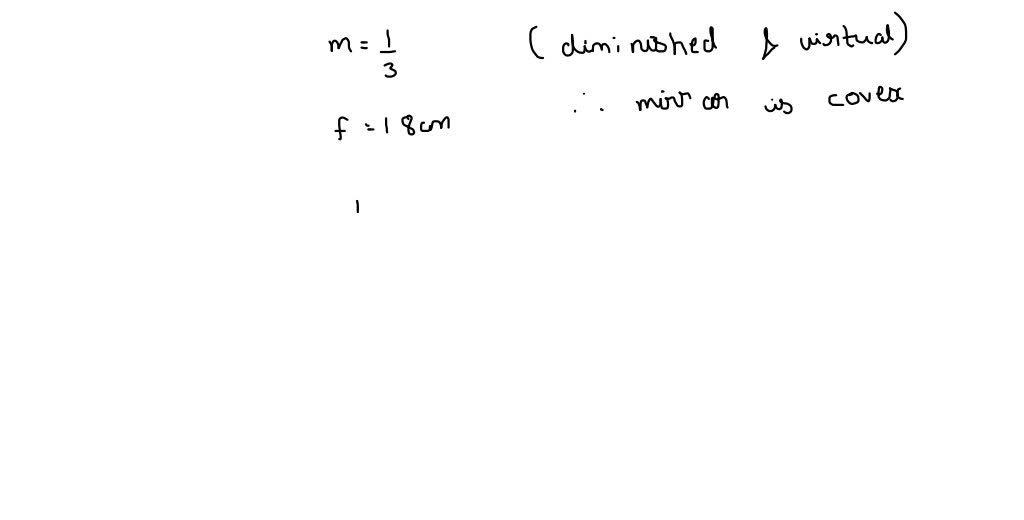 m = 1/3 (diminished & virtual)
∴ mirror is covex
f = 18cm
1